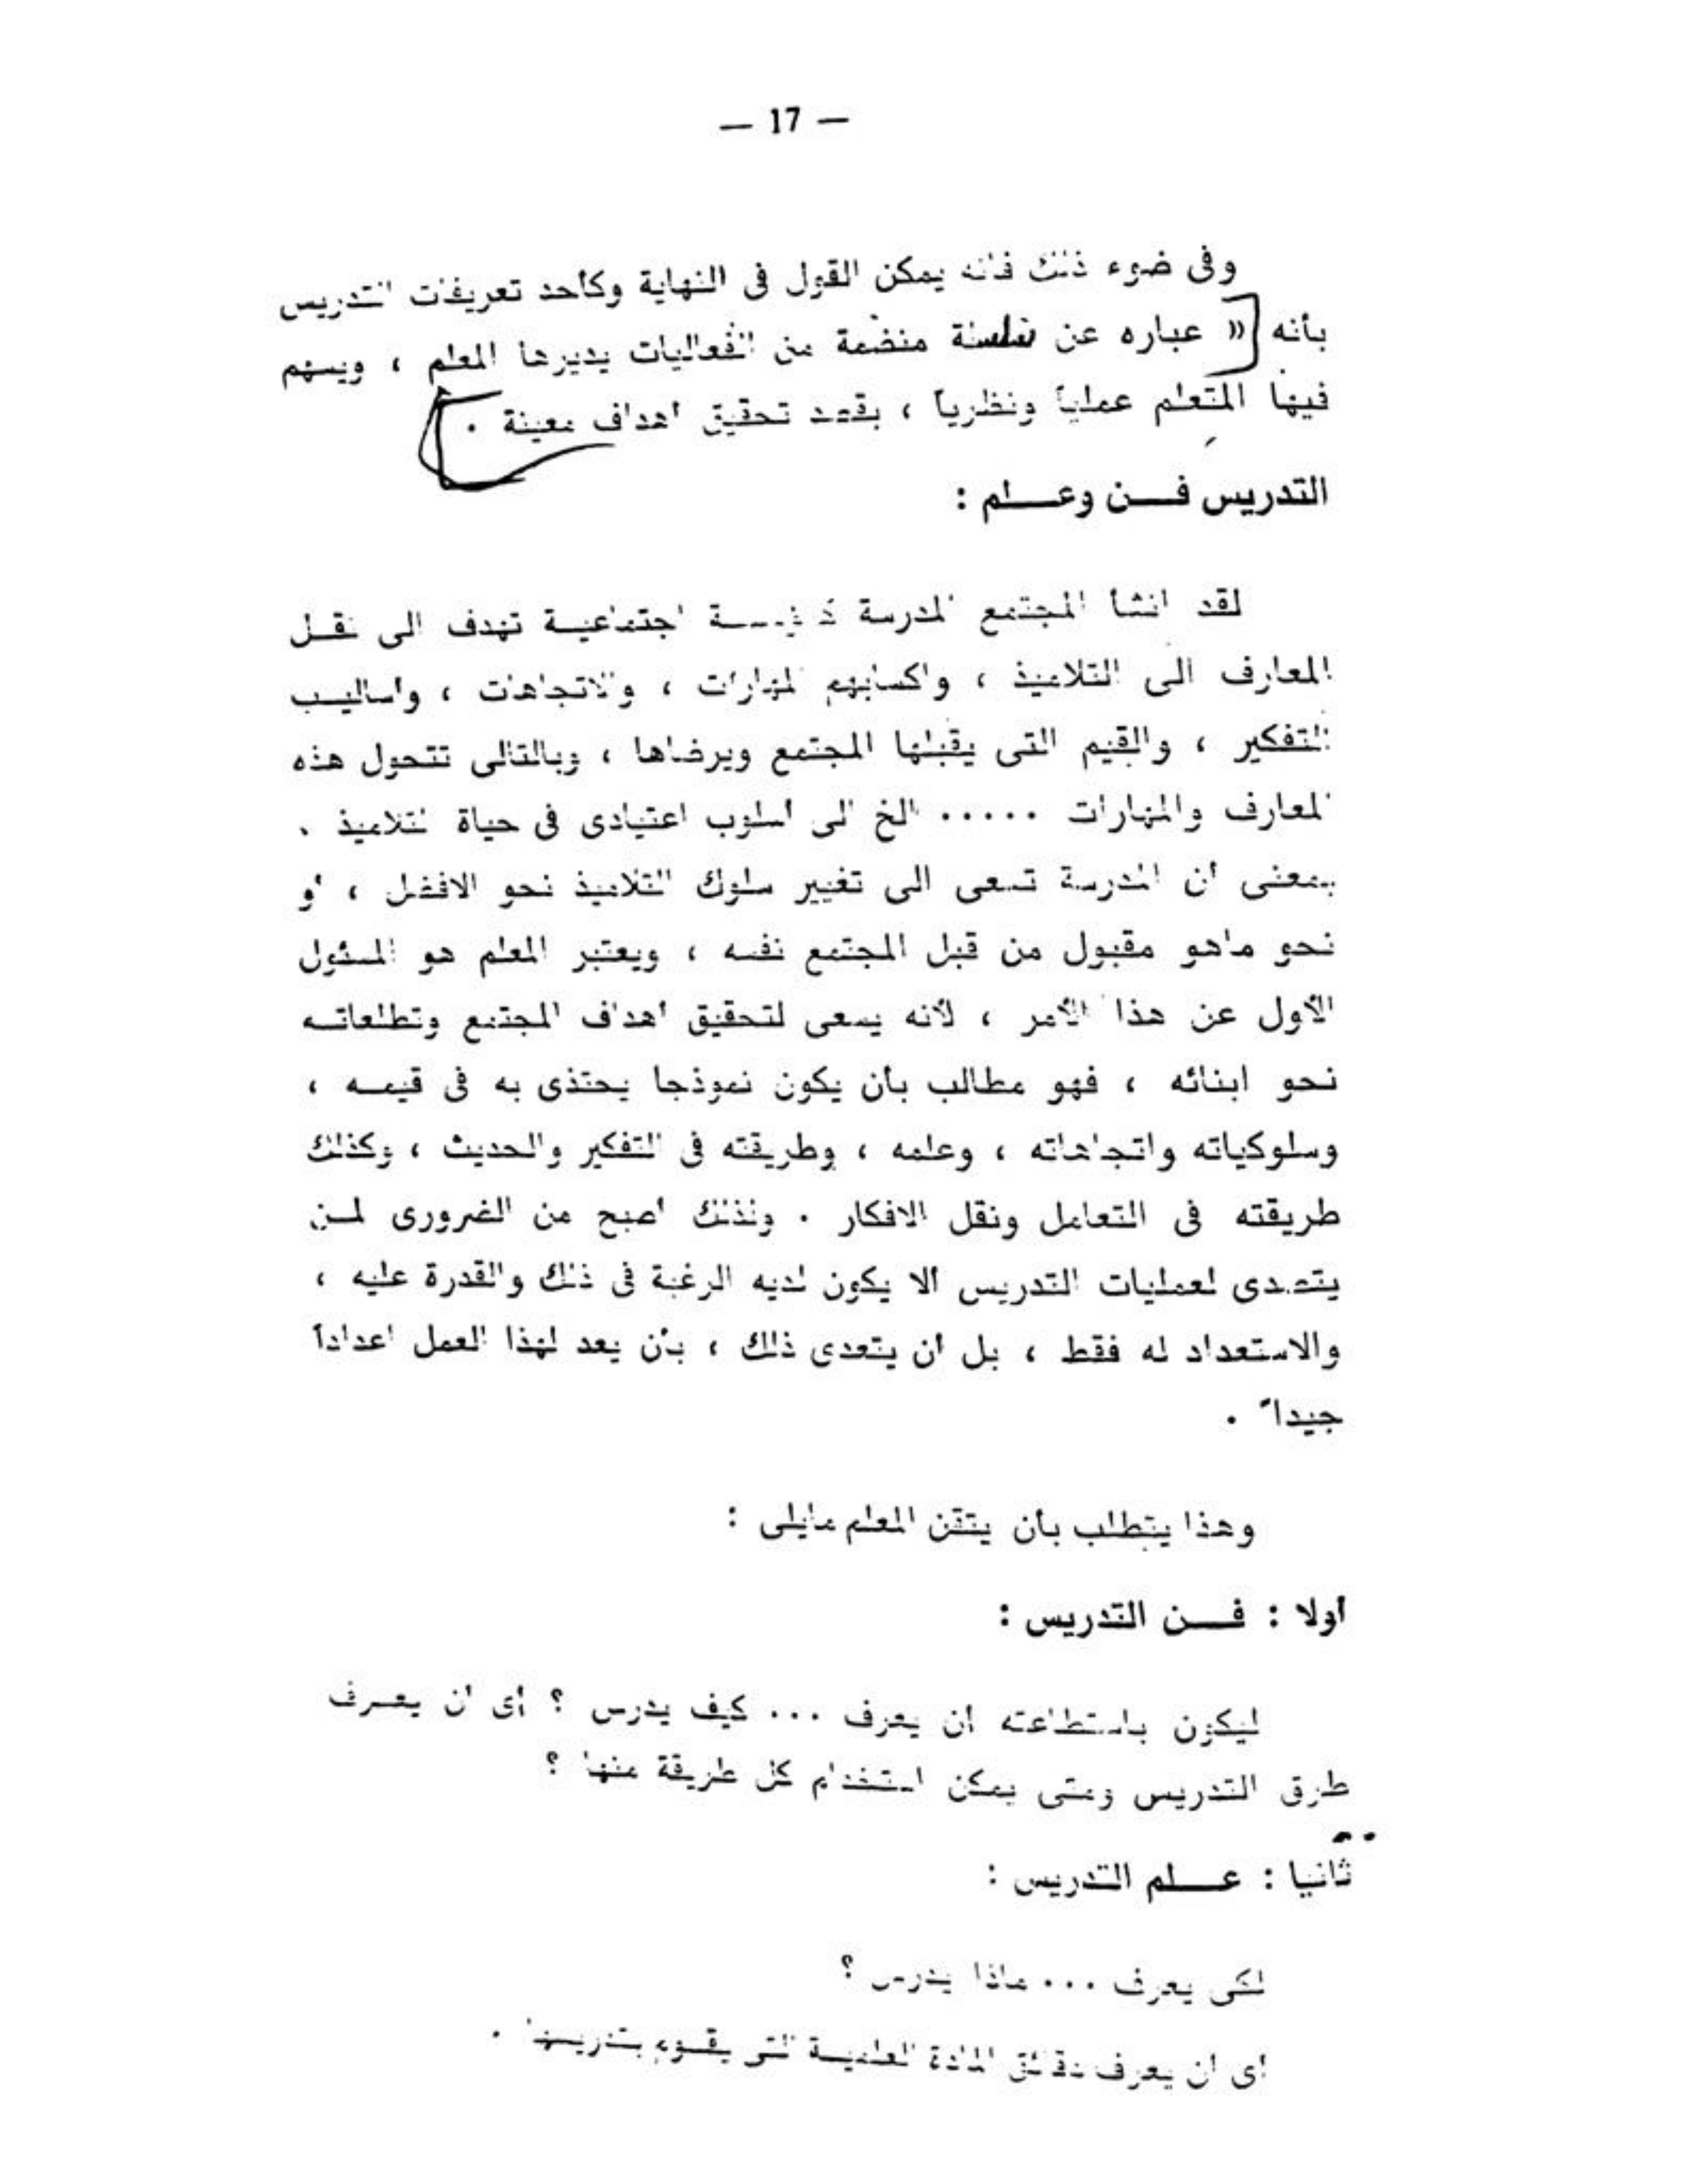 — 17 —
وفى ضوء ذلك فانه يمكن القول فى النهاية وكأحد تعريفات التدريس
بأنه « عباره عن سلسلة منظمة من الفعاليات يديرها المعلم ، ويسهم
فيها المتعلم عملياً ونظرياً ، بقصد تحقيق أهداف معينة .
التدريس فــن وعــلم :
لقد انشأ المجتمع المدرسة كمؤسسة اجتماعيـة تهدف الى نقـل
المعارف الى التلاميذ ، واكسابهم المهارات ، والاتجاهات ، وأساليـب
التفكير ، والقيم التى يقبلها المجتمع ويرضاها ، وبالتالى تتحول هذه
المعارف والمهارات ..... الخ الى أسلوب اعتيادى فى حياة التلاميذ .
بمعنى أن المدرسة تسعى الى تغيير سلوك التلاميذ نحو الافضل ، أو
نحو ماهو مقبول من قبل المجتمع نفسه ، ويعتبر المعلم هو المسئول
الأول عن هذا الأمر ، لأنه يسعى لتحقيق أهداف المجتمع وتطلعاتـه
نحو ابنائه ، فهو مطالب بأن يكون نموذجا يحتذى به فى قيمـه ،
وسلوكياته واتجاهاته ، وعلمه ، وطريقته فى التفكير والحديث ، وكذلك
طريقته فى التعامل ونقل الافكار . ولذلك أصبح من الضرورى لمـن
يتصدى لعمليات التدريس ألا يكون لديه الرغبة فى ذلك والقدرة عليه ،
والاستعداد له فقط ، بل أن يتعدى ذلك ، بأن يعد لهذا العمل اعداداً
جيداً .
وهذا يتطلب بأن يتقن المعلم مايلى :
أولا : فــن التدريس :
ليكون باستطاعته ان يعرف ... كيف يدرس ؟ أى أن يعـرف
طرق التدريس ومتى يمكن استخدام كل طريقة منها ؟
ثانيا : عــلم التدريس :
لكى يعرف ... ماذا يدرس ؟
أى ان يعرف دقائق المادة العلميـة التى يقـوم بتدريسها .